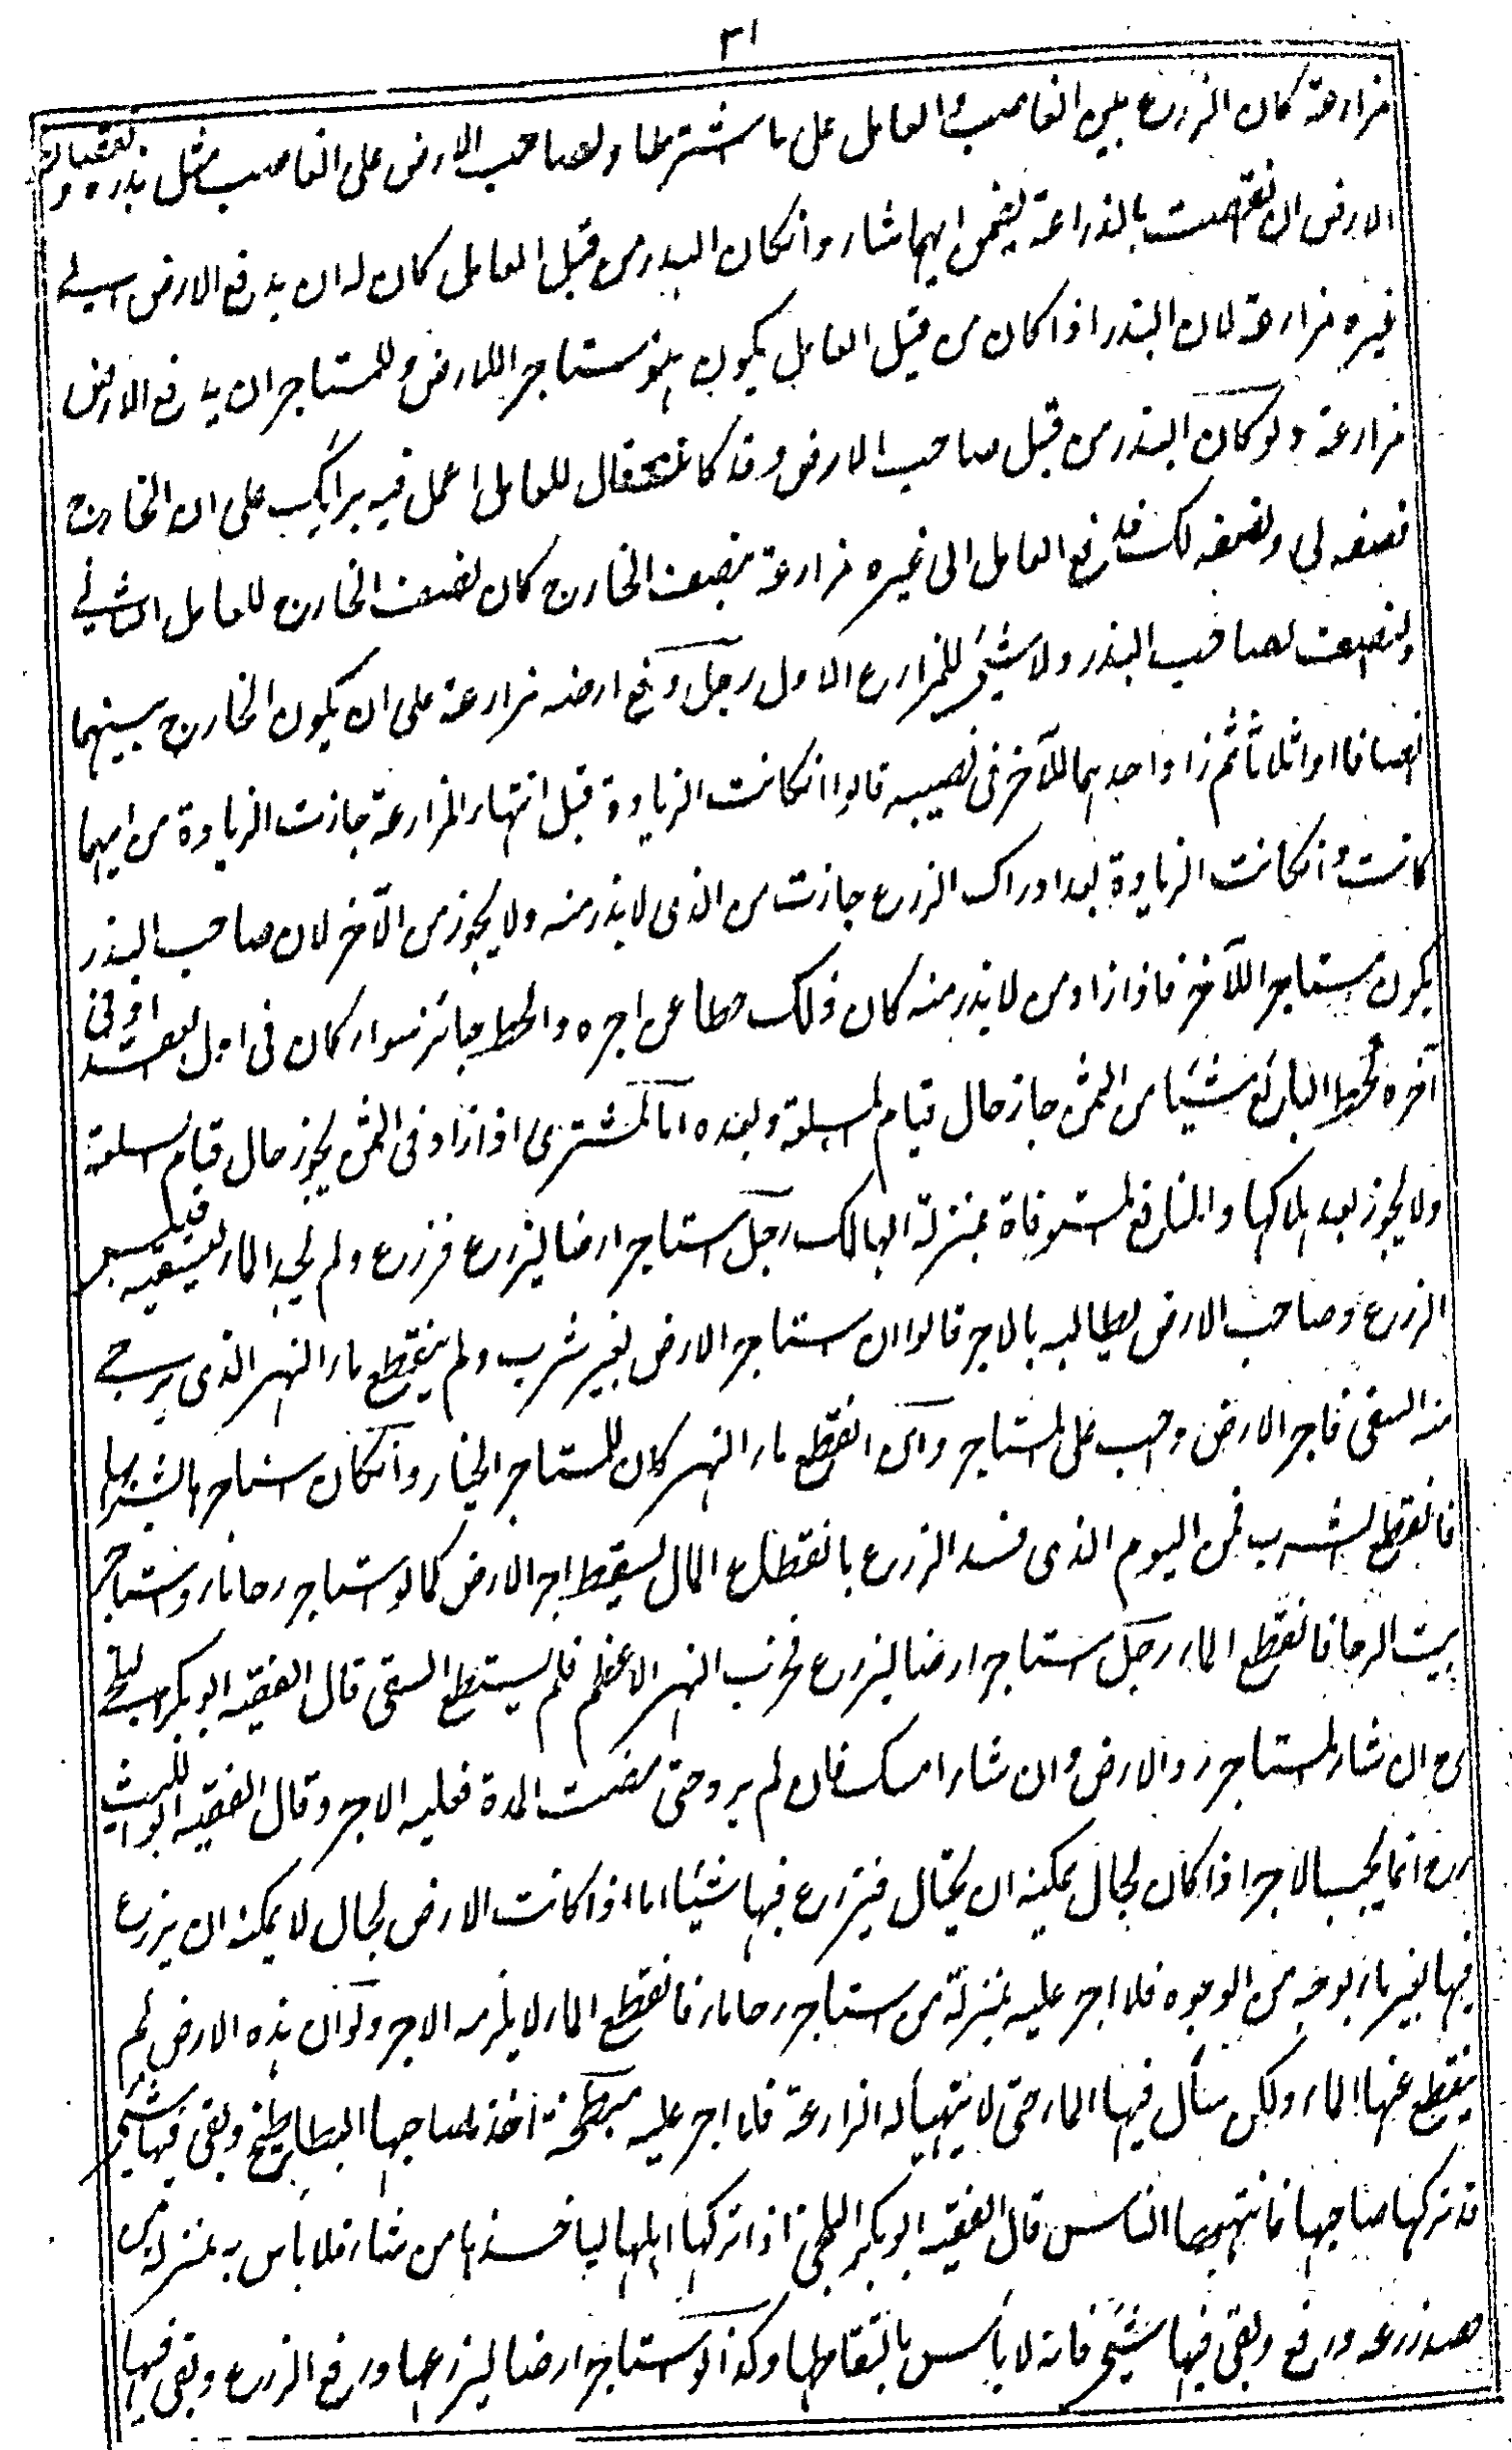 ٣١
مزارعة كان الزرع بين الغاصب والعامل على ما اشترطا ولصاحب الارض على الغاصب مثل بذره ونقصان
الارض ان نقصت بالزراعة يضمن ايهما شاء وانكان البذر من قبل العامل كان له ان يدفع الارض الى
غيره مزارعة لان البذر اذا كان من قبل العامل يكون هو مستاجرا للارض وللمستاجر ان يدفع الارض
مزارعة ولو كان البذر من قبل صاحب الارض وقد كان قال للعامل اعمل فيه برايك على ان الخارج
نصفه لي ونصفه لك فدفع العامل الى غيره مزارعة بنصف الخارج كان نصف الخارج للعامل الثاني
ونصف لصاحب البذر ولا شيئ للمزارع الاول رجل دفع ارضه مزارعة على ان يكون الخارج بينهما
انصافا او اثلاثا ثم زاد احدهما للآخر في نصيبه قالوا انكانت الزيادة قبل انتهاء المزارعة جازت الزيادة من ايهما
كانت وانكانت الزيادة بعد ادراك الزرع جازت من الذي لا بذر منه ولا يجوز من الآخر لان صاحب البذر
يكون مستاجرا للآخر فاذا زاد من لا بذر منه كان ذلك حطا عن اجره والحط جائز سواء كان في اول العقد او في
آخره كحط البائع شيئا من الثمن جاز حال قيام السلعة وبعده اما المشتري اذا زاد في الثمن يجوز حال قيام السلعة
ولا يجوز بعد هلاكها والمنافع المستوفاة بمنزلة الهالك رجل استاجر ارضا ليزرع فزرع ولم يجد الماء ليسقيه فيبس
الزرع وصاحب الارض يطالبه بالاجر قالوا ان استاجر الارض بغير شرب ولم ينقطع ماء النهر الذي يرجى
منه السقي فاجر الارض وجب على المستاجر وان انقطع ماء النهر كان للمستاجر الخيار وانكان استاجرها بشربها
فانقطع الشرب فمن اليوم الذي فسد الزرع بانقطاع الماء يسقط اجر الارض كما لو استاجر رحا ماء واستاجر
بيت الرحا فانقطع الماء رجل استاجر ارضا ليزرع فخرب النهر الاعظم فلم يستطع السقي قال الفقيه ابو بكر البلخي
رح ان شاء المستاجر رد الارض وان شاء امسك فان لم يرد حتى مضت المدة فعليه الاجر وقال الفقيه ابو الليث
رح انما يجب الاجر اذا كان بحال يمكنه ان يحتال فيزرع فيها شيئا اما اذا كانت الارض بحال لا يمكنه ان يزرع
فيها بغير ماء بوجه من الوجوه فلا اجر عليه بمنزلة من استاجر رحا ماء فانقطع الماء لا يلزمه الاجر ولو ان هذه الارض لم
ينقطع عنها الماء ولكن سال فيها الماء حتى لا يتهيأ له الزراعة فلا اجر عليه مبطخة اخذ صاحبها البطاطيخ وبقي فيها شيئ
قد تركها صاحبها فانتهبها الناس قال الفقيه ابو بكر البلخي اذا تركها اهلها لياخذها من شاء فلا باس به بمنزلة من
حصد زرعه ورفع وبقي فيها شيئ فانه لا بأس بالتقاطها وكذا لو استاجر ارضا ليزرعها ورفع الزرع وبقي فيها